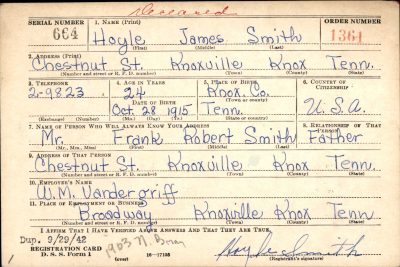 Cleared
SERIAL NUMBER 1. NAME (Print) ORDER NUMBER
664 Hoyle James Smith 1361
(First) (Middle) (Last)
2. ADDRESS (Print)
Chestnut St. Knoxville Knox Tenn.
(Number and street or R. F. D. number) (Town) (County) (State)
3. TELEPHONE 4. AGE IN YEARS 5. PLACE OF BIRTH 6. COUNTRY OF CITIZENSHIP
2-9823 24 Knox. Co.
DATE OF BIRTH
Oct. 28 1915 Tenn. U.S.A.
(Exchange) (Number) (Mo.) (Day) (Yr.) (State or country)
7. NAME OF PERSON WHO WILL ALWAYS KNOW YOUR ADDRESS 8. RELATIONSHIP OF THAT PERSON
Mr. Frank Robert Smith Father
(Mr., Mrs., Miss) (First) (Middle) (Last)
9. ADDRESS OF THAT PERSON
Chestnut St. Knoxville Knox Tenn.
(Number and street or R. F. D. number) (Town) (County) (State)
10. EMPLOYER'S NAME
W.M. Vandergriff
11. PLACE OF EMPLOYMENT OR BUSINESS
Broadway Knoxville Knox Tenn
(Number and street or R. F. D. number) (Town) (County) (State)
I AFFIRM THAT I HAVE VERIFIED ABOVE ANSWERS AND THAT THEY ARE TRUE.
Dup. 9/29/43 1903 N.
REGISTRATION CARD
D. S. S. Form 1 16-17105 Hoyle Smith